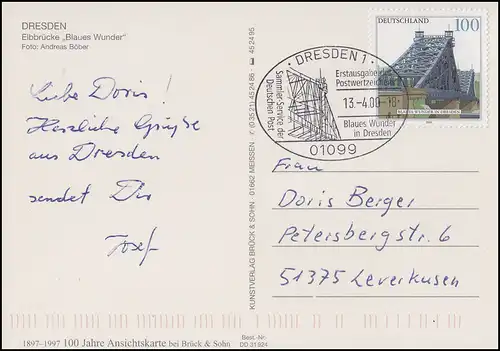 DRESDEN
Elbbrücke „Blaues Wunder"
Foto: Andreas Böber
Liebe Doris!
Herzliche Grüße
aus Dresden
sendet Dir
Josef
KUNSTVERLAG BRÜCK & SOHN · 01662 MEISSEN · ✆ (0 35 21) 45 24 86 · 45 24 95
DEUTSCHLAND 100
BLAUES WUNDER IN DRESDEN
· DRESDEN 1 ·
Erstausgabe
Postwertzeichen
13.-4.00-18
Blaues Wunder
in Dresden
Sammler-Service der
Deutschen Post
01099
Frau
Doris Berger
Petersbergstr. 6
51375 Leverkusen
1897–1997 100 Jahre Ansichtskarte bei Brück & Sohn
Best.-Nr.
DD 21924